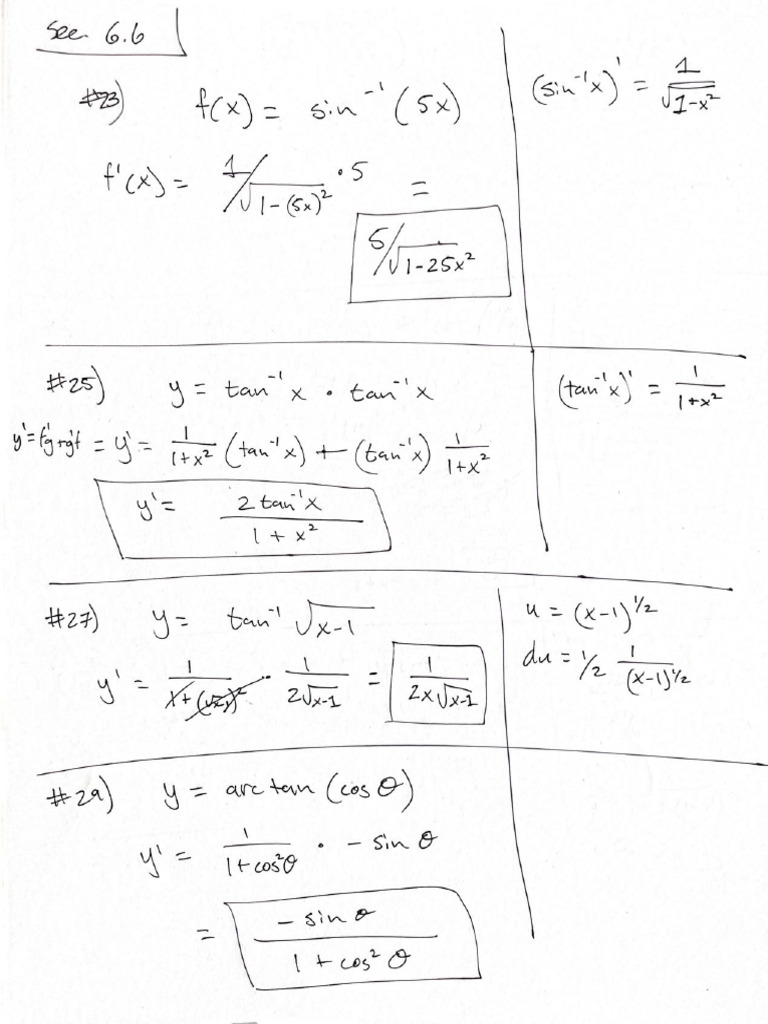 Sec 6.6
#23) f(x) = sin⁻¹(5x)
(sin⁻¹x)' = 1/√(1-x²)
f'(x) = 1/√(1-(5x)²) · 5 =
5/√(1-25x²)
#25) y = tan⁻¹x · tan⁻¹x
(tan⁻¹x)' = 1/(1+x²)
y'=f'g+g'f = y' = 1/(1+x²) (tan⁻¹x) + (tan⁻¹x) 1/(1+x²)
y' = 2 tan⁻¹x/(1+x²)
#27) y = tan⁻¹ √(x-1)
u = (x-1)^1/2
y' = 1/(1+(√x-1)²) · 1/(2√(x-1)) = 1/(2x√(x-1))
du = 1/2 1/(x-1)^1/2
#29) y = arctan (cos θ)
y' = 1/(1+cos²θ) · - sin θ
= - sin θ/(1 + cos² θ)